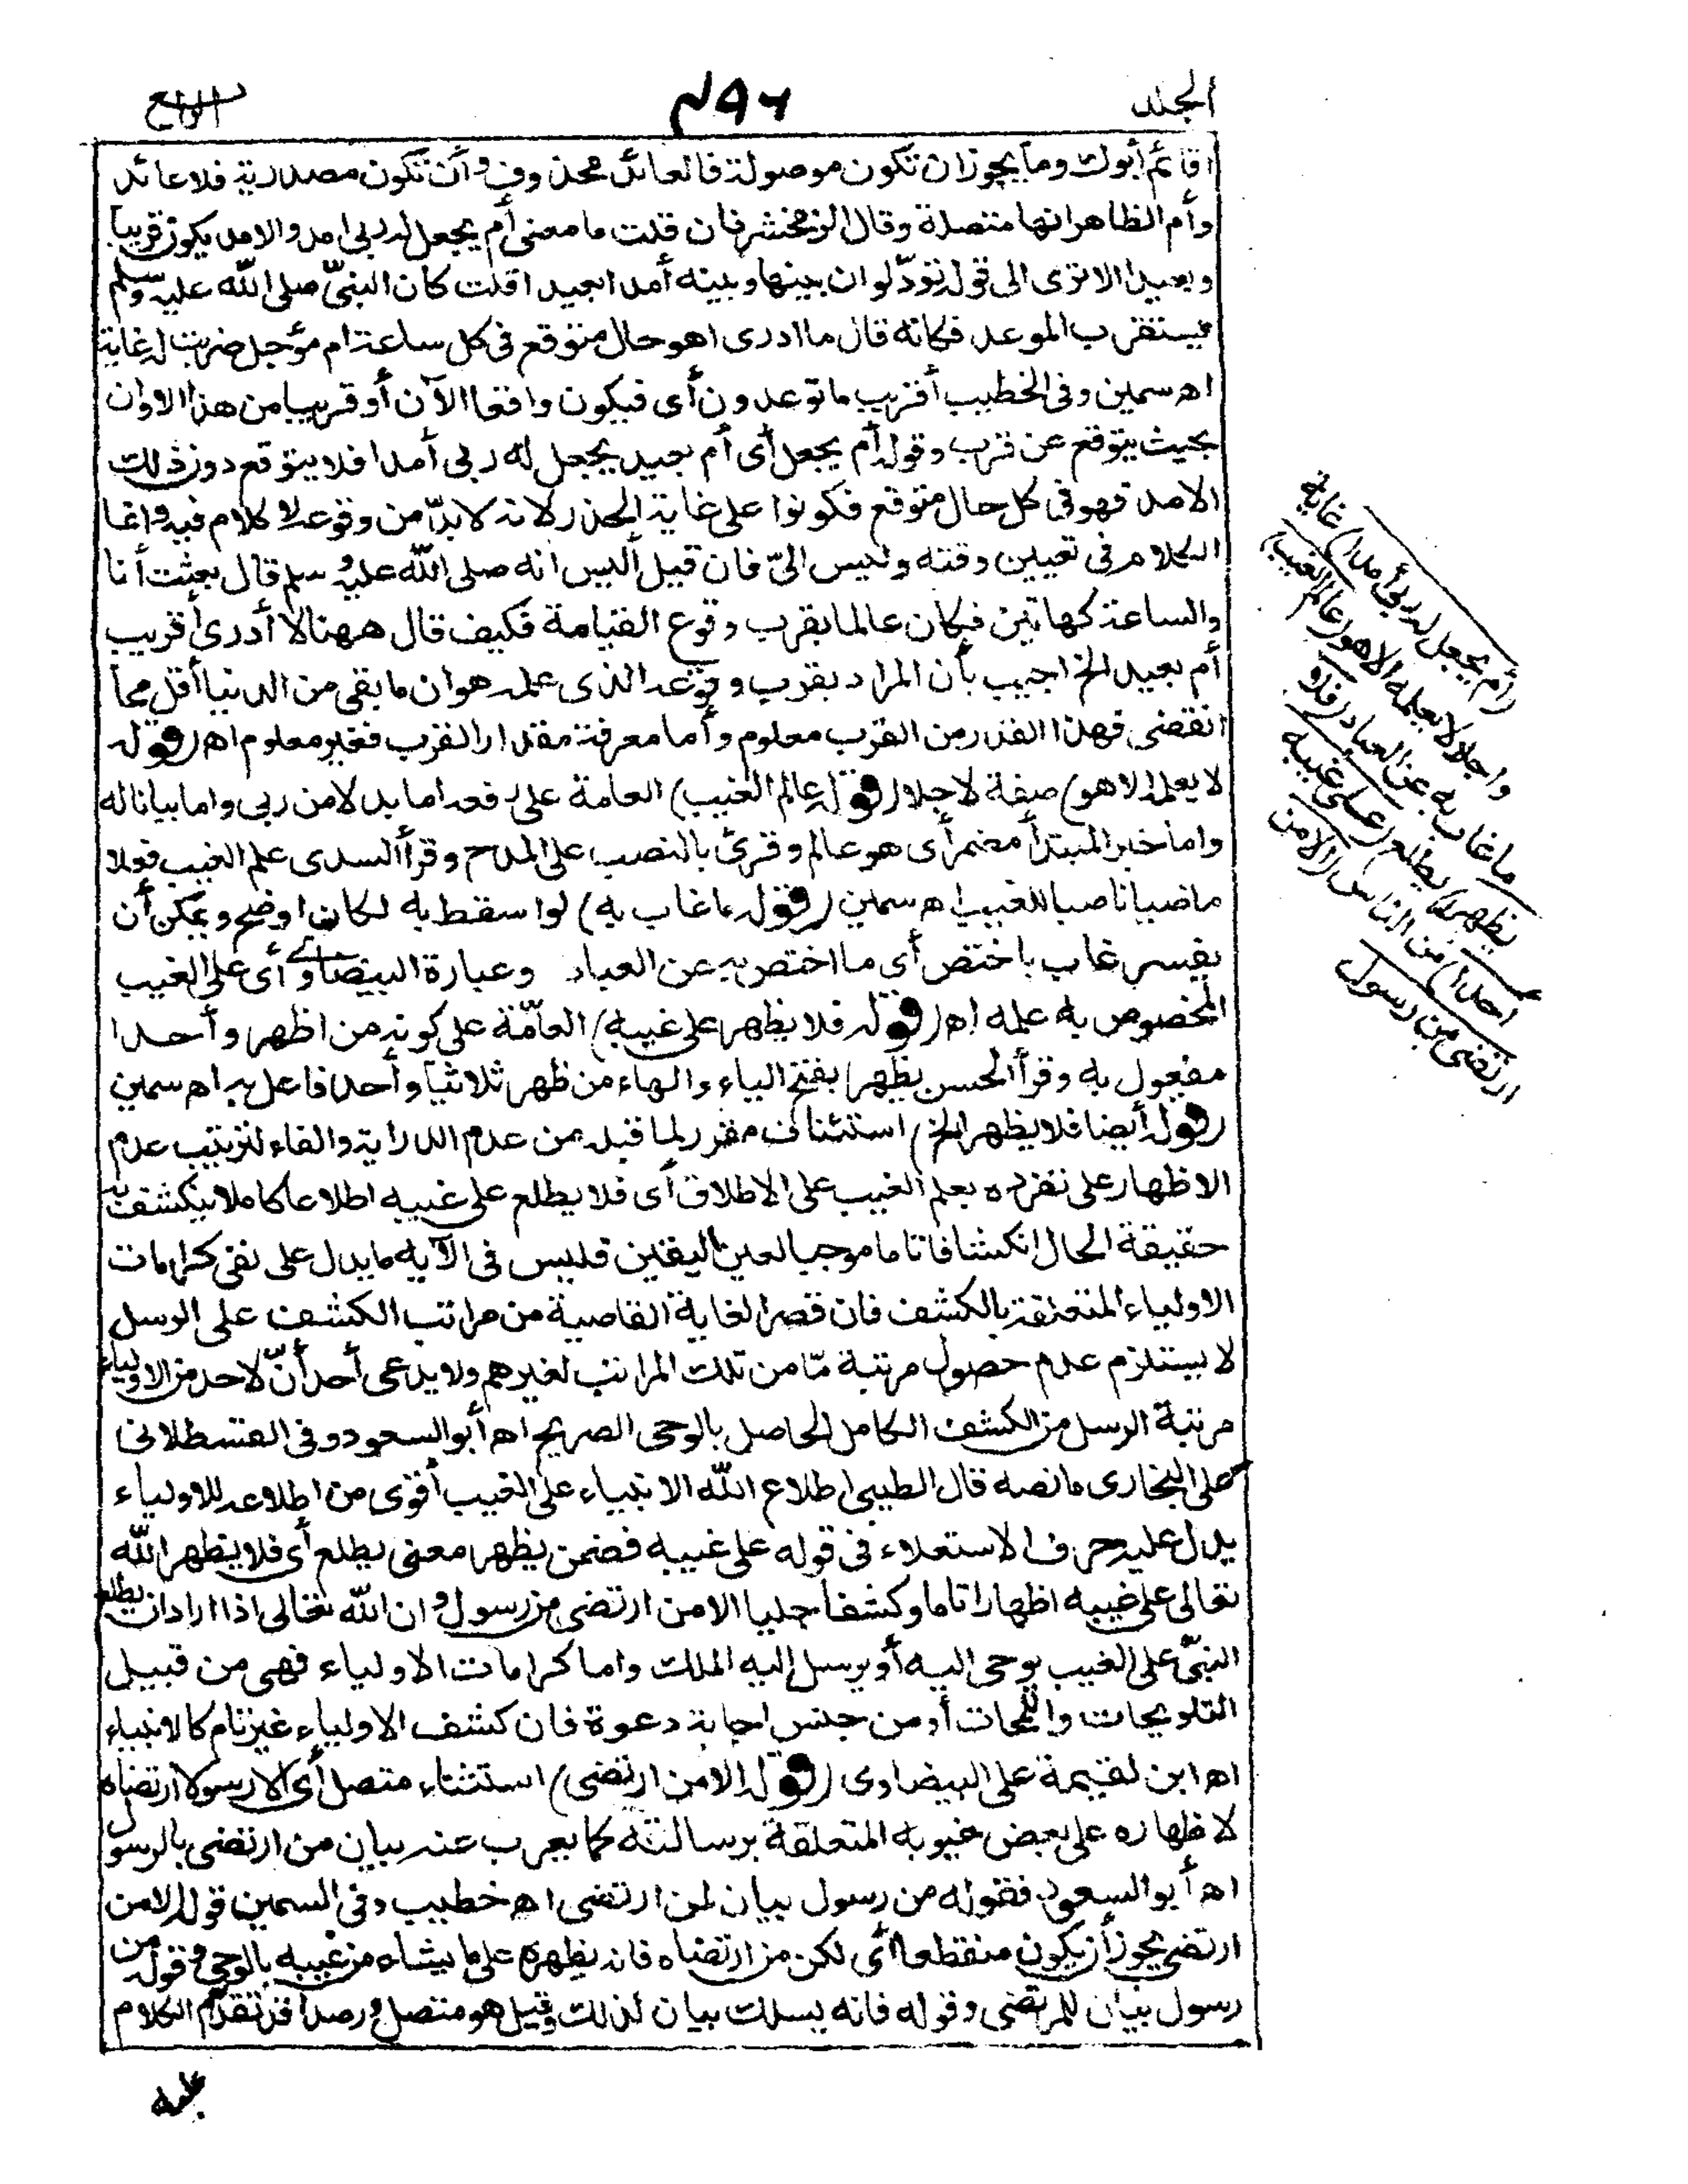 الجلد
٤٩٦
الرابع
أقائم أبوك وما يجوز ان تكون موصولة فالعائد محذوف وأن تكون مصدرية فلا عائد
وأم الظاهر انها متصلة وقال الزمخشرى فان قلت ما معنى أم يجعل له ربى امدا والامد يكون قريبا
وبعيدا الا ترى الى قوله تودّ لو ان بينها وبينه أمدا بعيدا قلت كان النبىّ صلى اللّٰه عليه وسلم
يستقرب الموعد فكانه قال ما ادرى اهو حال متوقع فى كل ساعة ام مؤجل ضربت له غاية
اه سمين وفى الخطيب أقريب ما توعدون أى فيكون واقعا الآن أو قريبا من هذا الاوان
بحيث يتوقع عن قرب وقوله أم يجعل أى أم بعيد يجعل له ربى أمدا فلا يتوقع دون ذلك
الامد فهو فى كل حال متوقع فكونوا على غاية الحذر لانه لا بدّ من وقوعه لا كلام فيه وانما
الكلام فى تعيين وقته وليس الىّ فان قيل أليس انه صلى اللّٰه عليه وسلم قال بعثت أنا
والساعة كهاتين فكان عالما بقرب وقوع القيامة فكيف قال ههنا لا أدرى أقريب
أم بعيد الخ اجيب بأن المراد بقرب وقوعه الذى علمه هو ان ما بقى من الدنيا أقل مما
انقضى فهذا القدر من القرب معلوم وأما معرفة مقدار القرب فغير معلوم اه (قوله
لا يعلمه الا هو) صفة لاجلا (قوله عالم الغيب) العامة على رفعه اما بدلا من ربى واما بيانا له
واما خبر المبتدأ مضمر أى هو عالم وقرئ بالنصب على المدح وقرأ السدى علم الغيب فعلا
ماضيا ناصبا للغيب اه سمين (قوله ما غاب به) لو اسقط به لكان اوضح ويمكن أن
يفسر غاب باختص أى ما اختص به عن العباد وعبارة البيضاوى أى على الغيب
المخصوص به علمه اه (قوله فلا يظهر على غيبه) العامّة على كونه من اظهر وأحدا
مفعول به وقرأ الحسن يظهر بفتح الياء والهاء من ظهر ثلاثيا وأحد فاعل به اه سمين
(قوله أيضا فلا يظهر الخ) استئناف مقرر لما قبله من عدم الدراية والفاء لترتيب عدم
الاظهار على تفرده بعلم الغيب على الاطلاق أى فلا يطلع على غيبه اطلاعا كاملا ينكشف به
حقيقة الحال انكشافا تاما موجبا لعين اليقين فليس فى الآية ما يدل على نفى كرامات
الاولياء المتعلقة بالكشف فان قصر الغاية القاصية من مراتب الكشف على الرسل
لا يستلزم عدم حصول مرتبة مّا من تلك المراتب لغيرهم ولا يدعى أحد أنّ لاحد من الاولياء
مرتبة الرسل من الكشف الكامل الحاصل بالوحى الصريح اه أبو السعود وفى القسطلانى
على البخارى ما نصه قال الطيبى اطلاع اللّٰه الانبياء على الغيب أقوى من اطلاعه للاولياء
يدل عليه حرف الاستعلاء فى قوله على غيبه فضمن يظهر معنى يطلع أى فلا يظهر اللّٰه
تعالى على غيبه اظهارا تاما وكشفا جليا الا من ارتضى من رسول وان اللّٰه تعالى اذا اراد ان يطلع
النبىّ على الغيب يوحى اليه أو يرسل اليه الملك واما كرامات الاولياء فهى من قبيل
التلويحات واللمحات أو من جنس اجابة دعوة فان كشف الاولياء غير تام كالانبياء
اه ابن لقيمة على البيضاوى (قوله الا من ارتضى) استثناء متصل أى الا رسولا ارتضاه
لاظهاره على بعض غيوبه المتعلقة برسالته كما يعرب عنه بيان من ارتضى بالرسول
اه أبو السعود فقوله من رسول بيان لمن ارتضى اه خطيب وفى السمين قوله الا من
ارتضى يجوز أن يكون منقطعا أى لكن من ارتضاه فانه يظهره على ما يشاء من غيبه بالوحى وقوله من
رسول بيان للمرتضى وقوله فانه يسلك بيان لذلك وقيل هو متصل ورصدا قد تقدّم الكلام
(أم يجعل له ربى أمدا) غاية
واجلا لا يعلمه الا هو (عالم الغيب)
ما غاب به عن العباد (فلا
يظهر) يطلع (على غيبه
احدا) من الناس (الا من
ارتضى من رسول
عليه